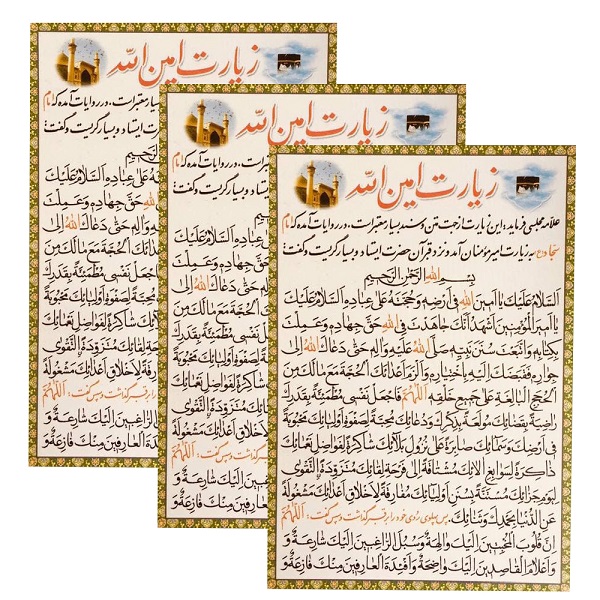 زیارت امین الله
زیارت امین الله
زیارت امین الله
علامه مجلسی فرماید: این زیارت از جهت متن و سند بسیار معتبر است، در روایات آمده که امام
سجاد(ع) به زیارت امیر مؤمنان آمد و نزد قبر آن حضرت ایستاد و بسیار گریست و گفت:
بِسْمِ اللهِ الرَّحْمنِ الرَّحیمِ
اَلسَّلامُ عَلَیْكَ یا اَمینَ اللهِ فی اَرْضِهِ وَ حُجَّتَهُ عَلی عِبادِهِ اَلسَّلامُ عَلَیْكَ
یا اَمیرَ الْمُؤْمِنینَ اَشْهَدُ اَنَّكَ جاهَدْتَ فِی اللهِ حَقَّ جِهادِهِ وَ عَمِلْتَ
بِکِتابِهِ وَ اتَّبَعْتَ سُنَنَ نَبِیِّهِ صَلَّی اللهُ عَلَیْهِ وَ الِهِ حَتّی دَعاكَ اللهُ اِلی
جِوارِهِ فَقَبَضَكَ اِلَیْهِ بِاخْتِیارِهِ وَ اَلْزَمَ اَعْدائَكَ الْحُجَّةَ مَعَ مالَكَ مِنَ
الْحُجَجِ الْبالِغَةِ عَلی جَمیعِ خَلْقِهِ اَللّهُمَّ فَاجْعَلْ نَفْسی مُطْمَئِنَّةً بِقَدَرِكَ
راضِیَةً بِقَضائِكَ مُولَعَةً بِذِکْرِكَ وَ دُعائِكَ مُحِبَّةً لِصَفْوَةِ اَوْلِیائِكَ مَحْبُوبَةً
فی اَرْضِكَ وَ سَمائِكَ صابِرَةً عَلی نُزُولِ بَلائِكَ شاکِرَةً لِفَواضِلِ نَعْمائِكَ
ذاکِرَةً لِسَوابِغِ الائِكَ مُشْتاقَةً اِلی فَرْحَةِ لِقائِكَ مُتَزَوِّدَةً التَّقْوی
لِیَوْمِ جَزائِكَ مُسْتَنَّةً بِسُنَنِ اَوْلِیائِكَ مُفارِقَةً لِاَخْلاقِ اَعْدائِكَ مَشْغُولَةً
عَنِ الدُّنْیا بِحَمْدِكَ وَ ثَنائِكَ. پس پهلوی روی خود را بر قبر گذاشت و پس گفت: اَللّهُمَّ
اِنَّ قُلُوبَ الْمُخْبِتینَ اِلَیْكَ والِهَةٌ وَ سُبُلَ الرّاغِبینَ اِلَیْكَ شارِعَةٌ وَ
وَ اَعْلامَ الْقاصِدینَ اِلَیْكَ واضِحَةٌ وَ اَفْئِدَةَ الْعارِفینَ مِنْكَ فازِعَةٌ وَ